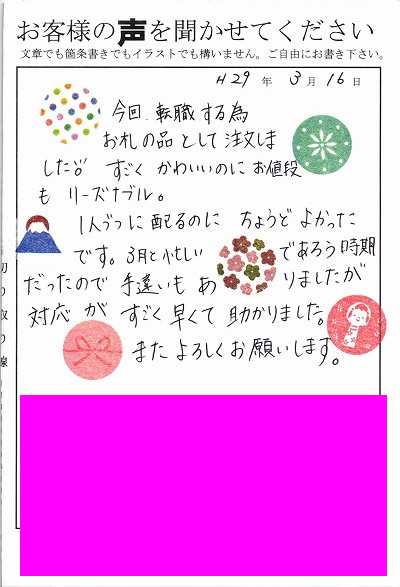 お客様の声を聞かせてください
文章でも箇条書きでもイラストでも構いません。ご自由にお書き下さい。
H29 年 3月 16日
今回、転職する為
お札の品として注文しま
した。 すごく かわいいのに お値段
も リーズナブル。
1人づつに 配るのに ちょうど よかった
です。3月と忙しい であろう時期
だったので 手違いも ありましたが
対応が すごく 早くて 助かりました。
また よろしくお願いします。
切り取り線